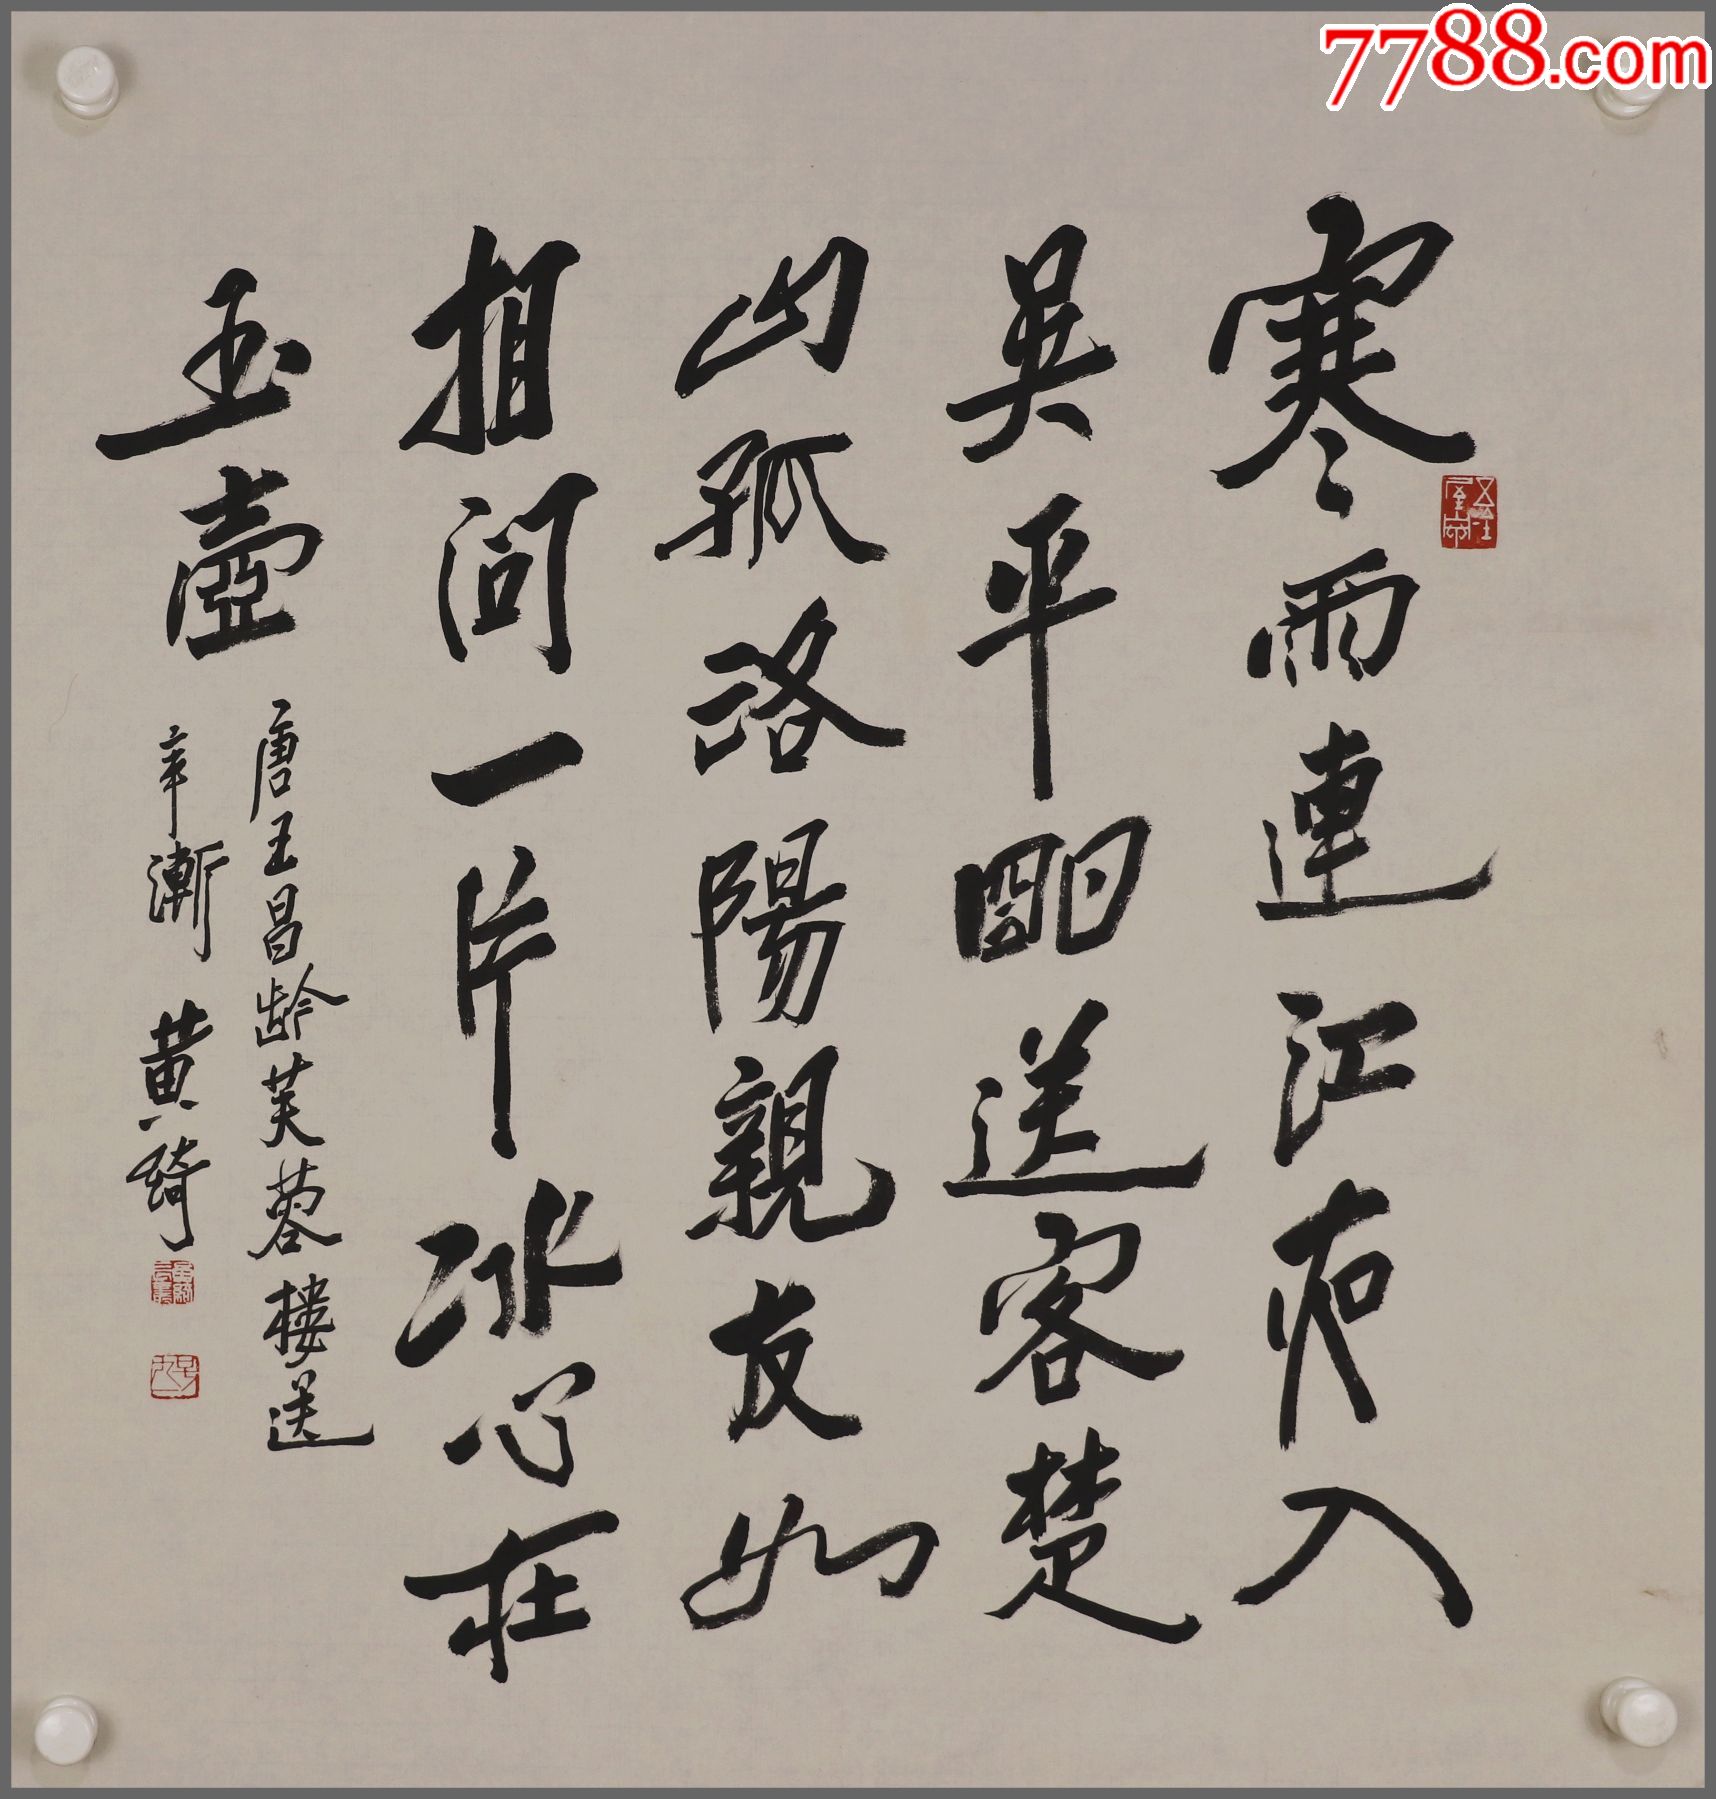 寒雨連江夜入
吴平明送客楚
山孤洛陽親友如
相问一片冰心在
玉壺
唐王昌龄芙蓉楼送
辛漸 黄綺
7788.com